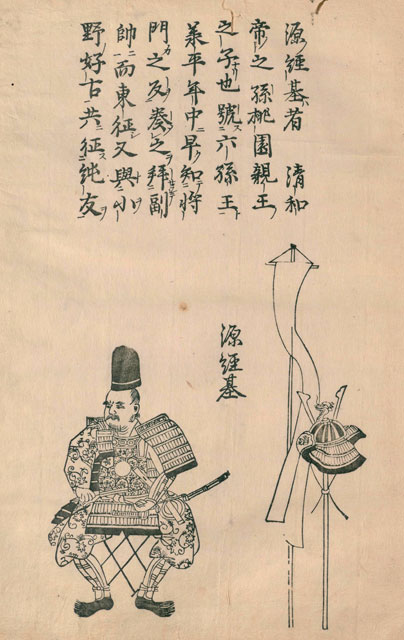 源經基者 清和
帝之孫桃園親王
之子也號六孫王
承平年中早知将
門之反奏之拜副
帥而東征又與小
野好古共征純友
源經基